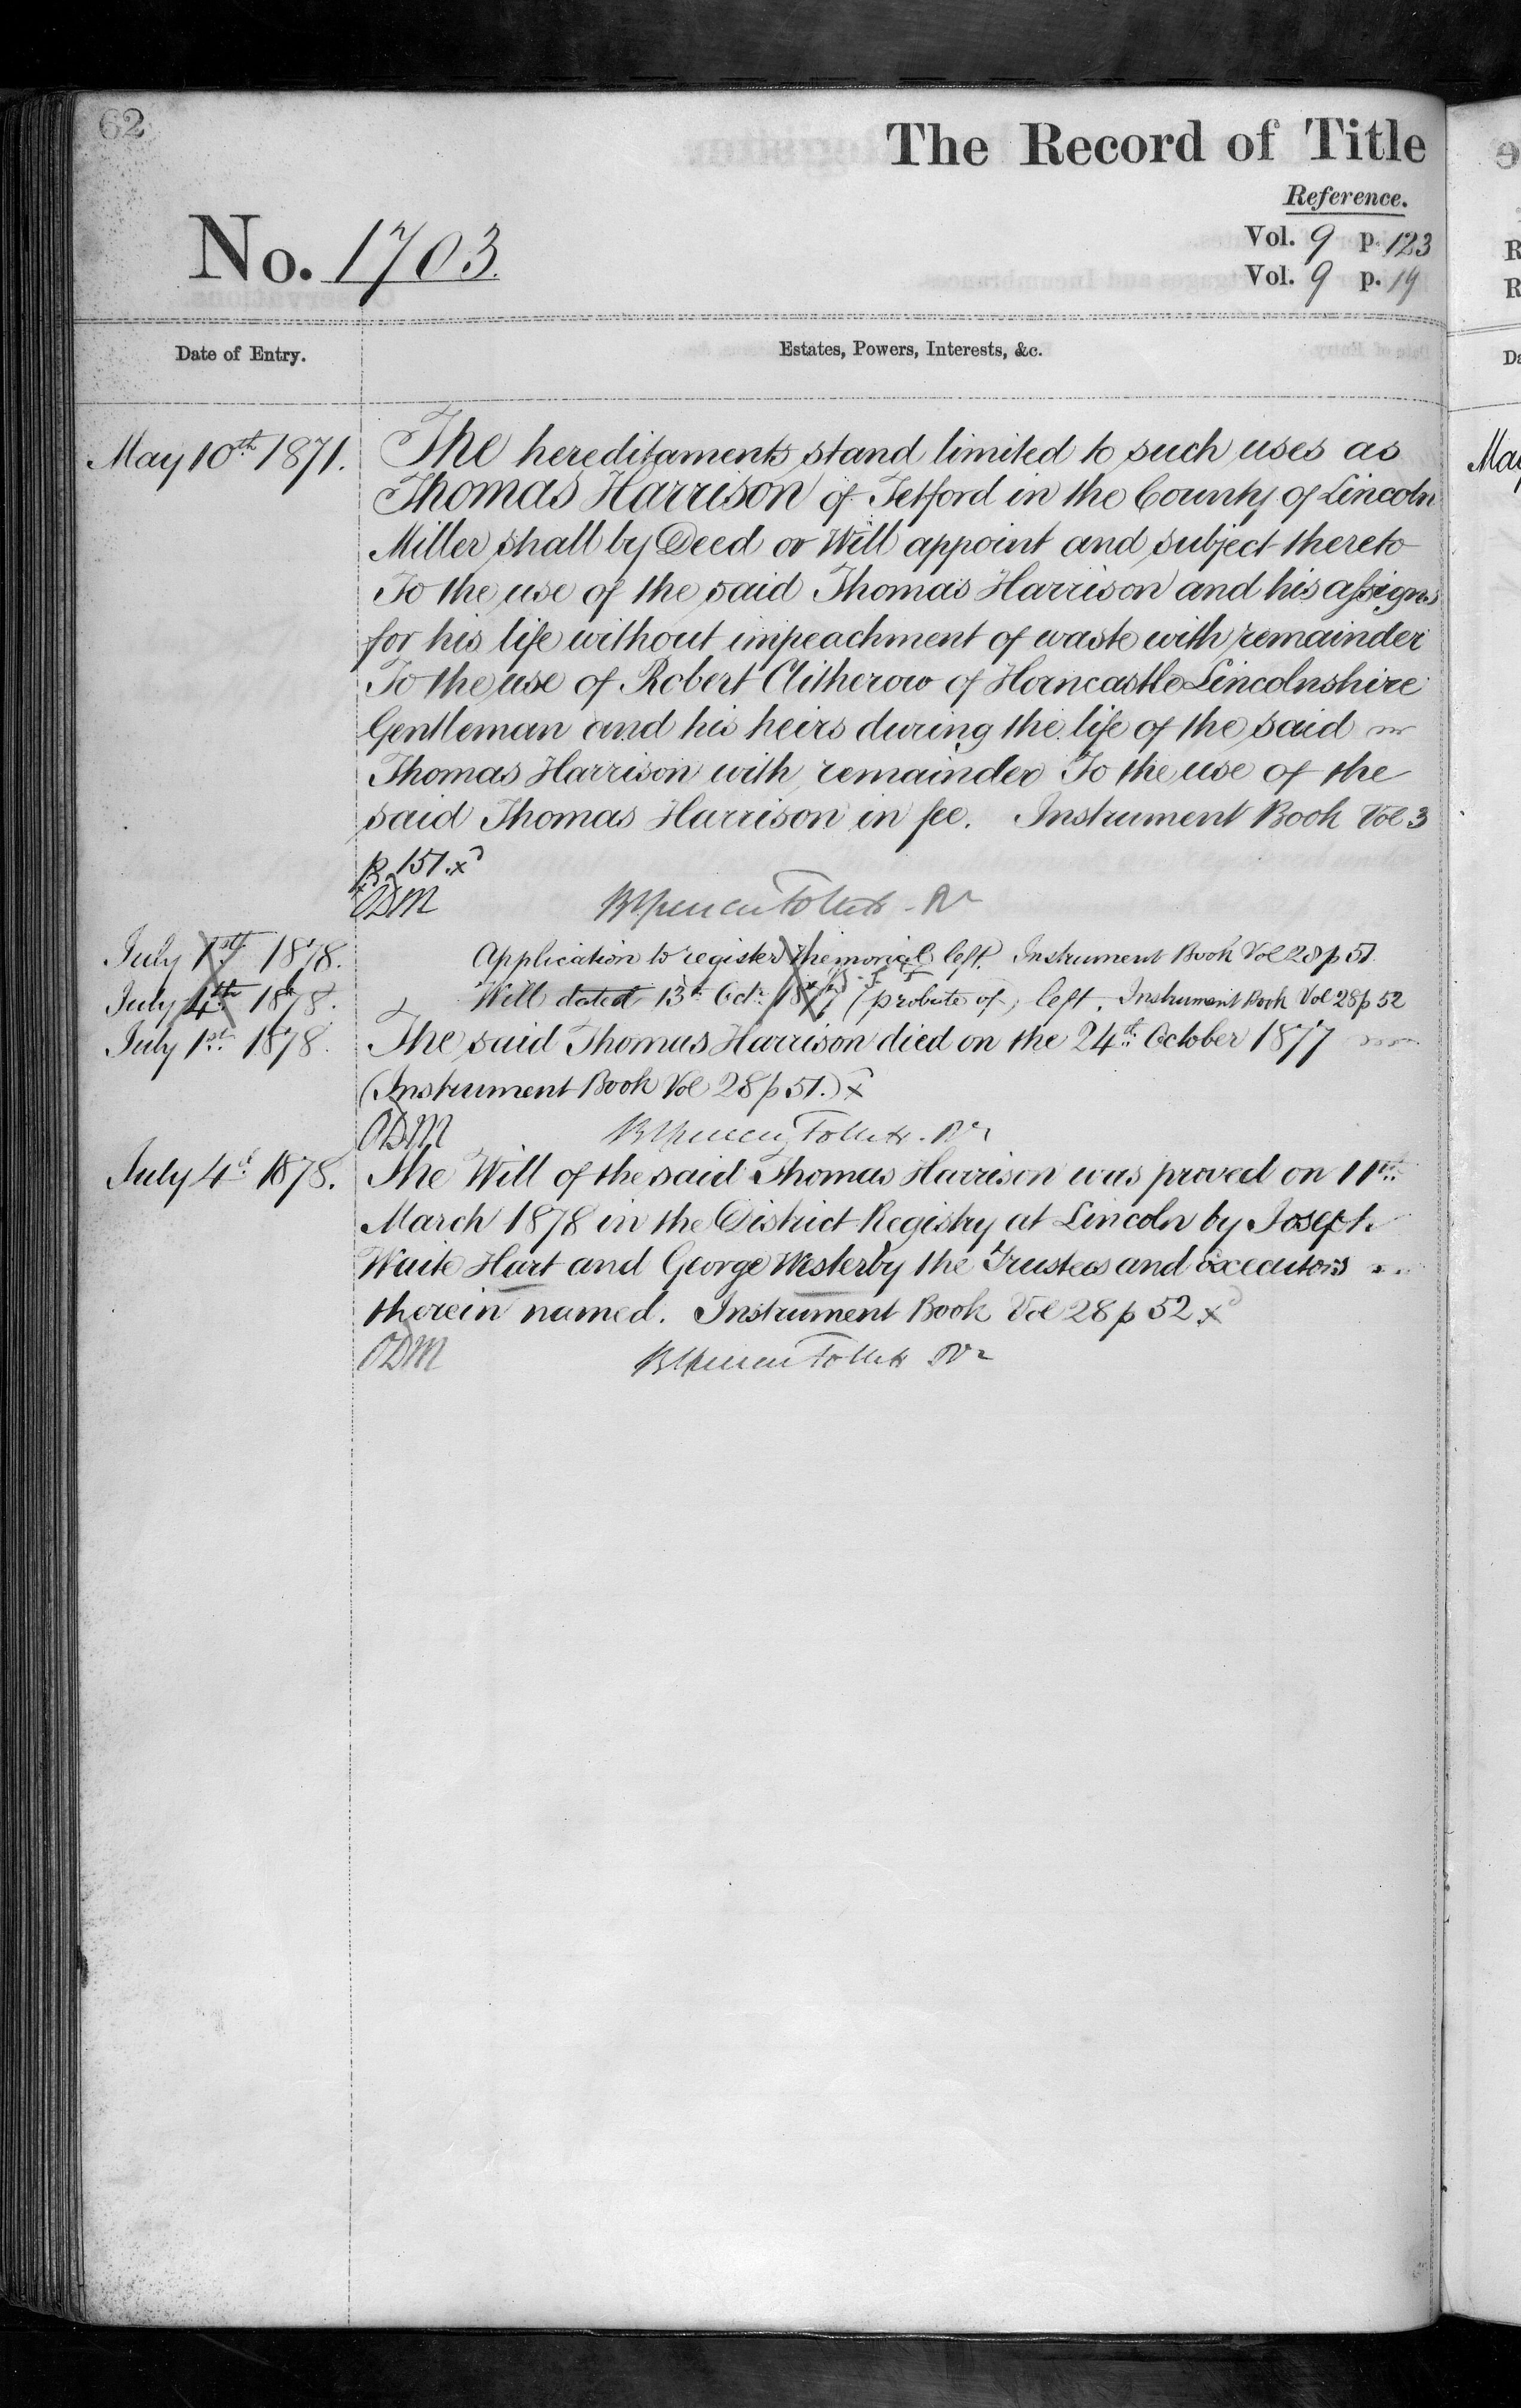 62
The Record of Title
Reference.
No. 1703.
Vol. 9 p. 123
Vol. 9 p. 19
Date of Entry.
Estates, Powers, Interests, &c.
May 10th 1871. The hereditaments stand limited to such uses as
Thomas Harrison of Tetford in the County of Lincoln
Miller shall by Deed or Will appoint and subject thereto
To the use of the said Thomas Harrison and his assigns
for his life without impeachment of waste with remainder
To the use of Robert Clitherow of Horncastle Lincolnshire
Gentleman and his heirs during the life of the said
Thomas Harrison with remainder To the use of the
said Thomas Harrison in fee. Instrument Book Vol 3
p. 151. x
ODM
July 1st 1878. Application to register memorial left. Instrument Book Vol 28 p 51.
July 4th 1878. Will dated 13th Octr 1877 (probate of) left. Instrument Book Vol 28 p 52
July 1st 1878. The said Thomas Harrison died on the 24th October 1877
(Instrument Book Vol 28 p 51.) x
ODM
July 4th 1878. The Will of the said Thomas Harrison was proved on 11th
March 1878 in the District Registry at Lincoln by Joseph
Waite Hart and George Westerby the Trustees and Executors
therein named. Instrument Book Vol 28 p 52 x
ODM